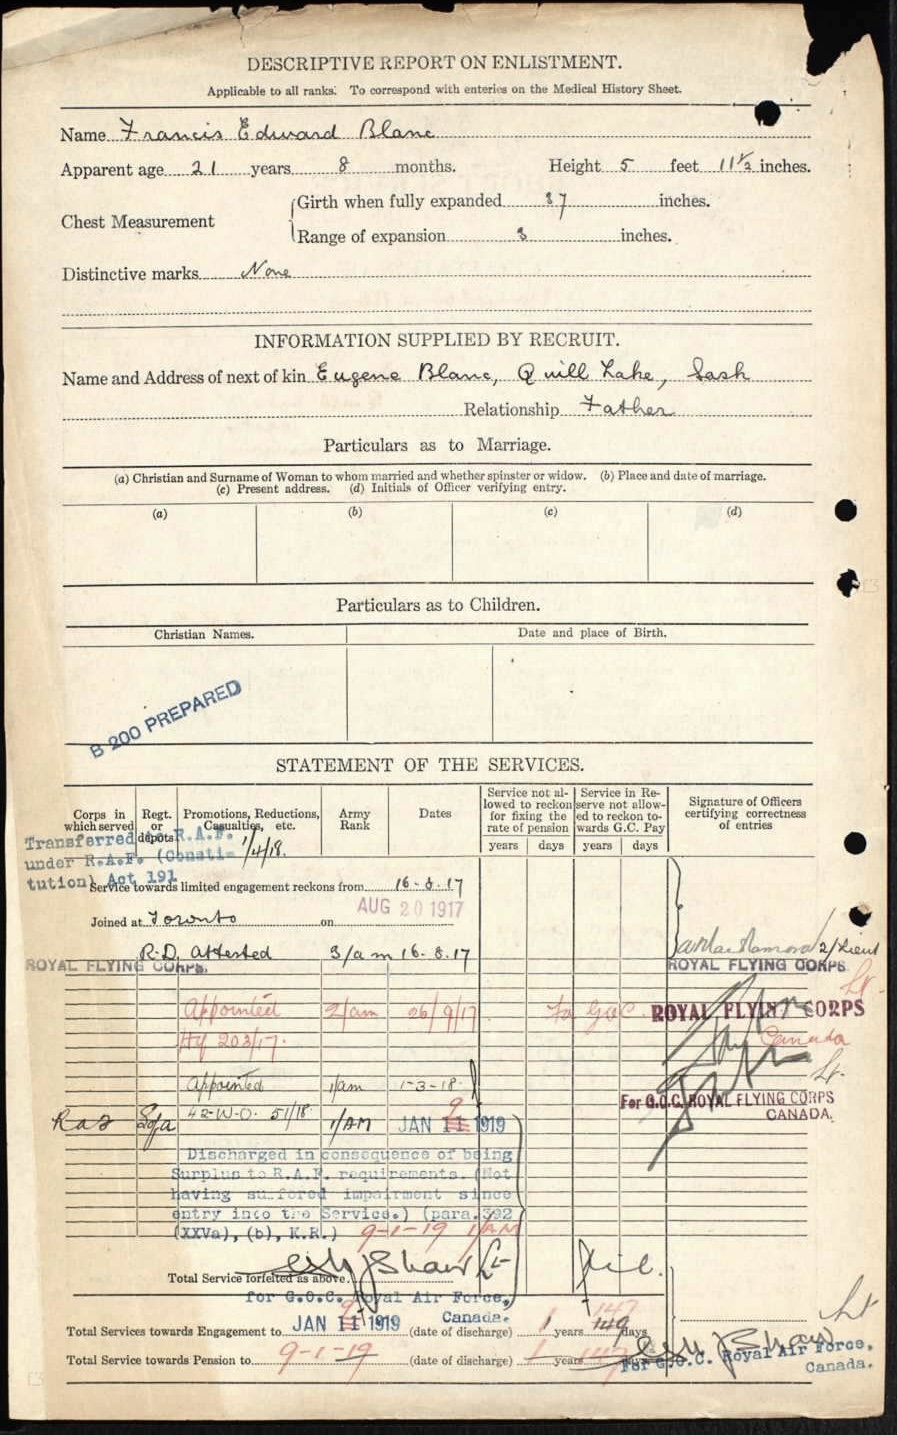 DESCRIPTIVE REPORT ON ENLISTMENT.
Applicable to all ranks. To correspond with enteries on the Medical History Sheet.
Name Francis Edward Blanc
Apparent age 21 years 8 months. Height 5 feet 11½ inches.
Chest Measurement
Girth when fully expanded 37 inches.
Range of expansion 3 inches.
Distinctive marks None
INFORMATION SUPPLIED BY RECRUIT.
Name and Address of next of kin Eugene Blanc, Quill Lake, Sask
Relationship Father
Particulars as to Marriage.
(a) Christian and Surname of Woman to whom married and whether spinster or widow. (b) Place and date of marriage.
(c) Present address. (d) Initials of Officer verifying entry.
(a) (b) (c) (d)
Particulars as to Children.
Christian Names. Date and place of Birth.
B 200 PREPARED
STATEMENT OF THE SERVICES.
Corps in which served
Regt. or depots
Promotions, Reductions, Casualties, etc.
Army Rank
Dates
Service not allowed to reckon for fixing the rate of pension
Service in Reserve not allowed to reckon towards G.C. Pay
Signature of Officers certifying correctness of entries
years days years days
Transferred to R.A.F. 1/4/18.
under R.A.F. (Consti-
tution) Act 191
Service towards limited engagement reckons from 16-8-17
Joined at Toronto on AUG 20 1917
R.D. Attested 3/am 16.8.17
2/Lieut
ROYAL FLYING CORPS. ROYAL FLYING CORPS
Appointed 2/am 26/9/17 Fo GOC ROYAL FLYING CORPS
Hq 203/17. Canada
Lt.
Appointed 1/am 1-3-18.
For G.O.C. ROYAL FLYING CORPS
CANADA.
42-W-O. 51/18 1/AM JAN 11 1919
9
Discharged in consequence of being
Surplus to R.A.F. requirements. (Not
having suffered impairment since
entry into the Service.) (para.392
(XXVa), (b), K.R.) 9-1-19 1/AM
Total Service forfeited as above. Shaw Lt Nil.
for G.O.C. Royal Air Force,
Canada.
Total Services towards Engagement to JAN 11 1919 (date of discharge) 1 years 149 days
9 147
Total Service towards Pension to 9-1-19 (date of discharge) 1 years 147 days
Shaw Lt
For G.O.C. Royal Air Force,
Canada.